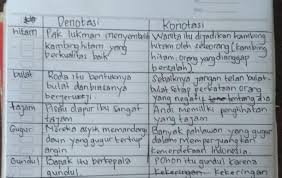 Denotasi Konotasi
hitam Pak lukman menyembelih Wanita itu dijadikan kambing
kambing hitam yang hitam oleh seseorang (kambing
berkualitas baik hitam: orang yang dianggap
bersalah)
bulat Roda itu bentuknya Sebaiknya jangan telan bulat-
bulat dan biasanya bulat setiap perkataan orang
bergerigi yang negatif tentang dia
tajam Pisau dapur ibu sangat Andi memiliki penglihatan
tajam yang tajam
Gugur Mereka asyik memandangi Banyak pahlawan yang gugur
daun yang gugur tertiup dalam memperjuangkan
angin Kemerdekaan Indonesia.
Gundul Bapak itu berkepala Pohon itu gundul karena
gundul. Kekeringan